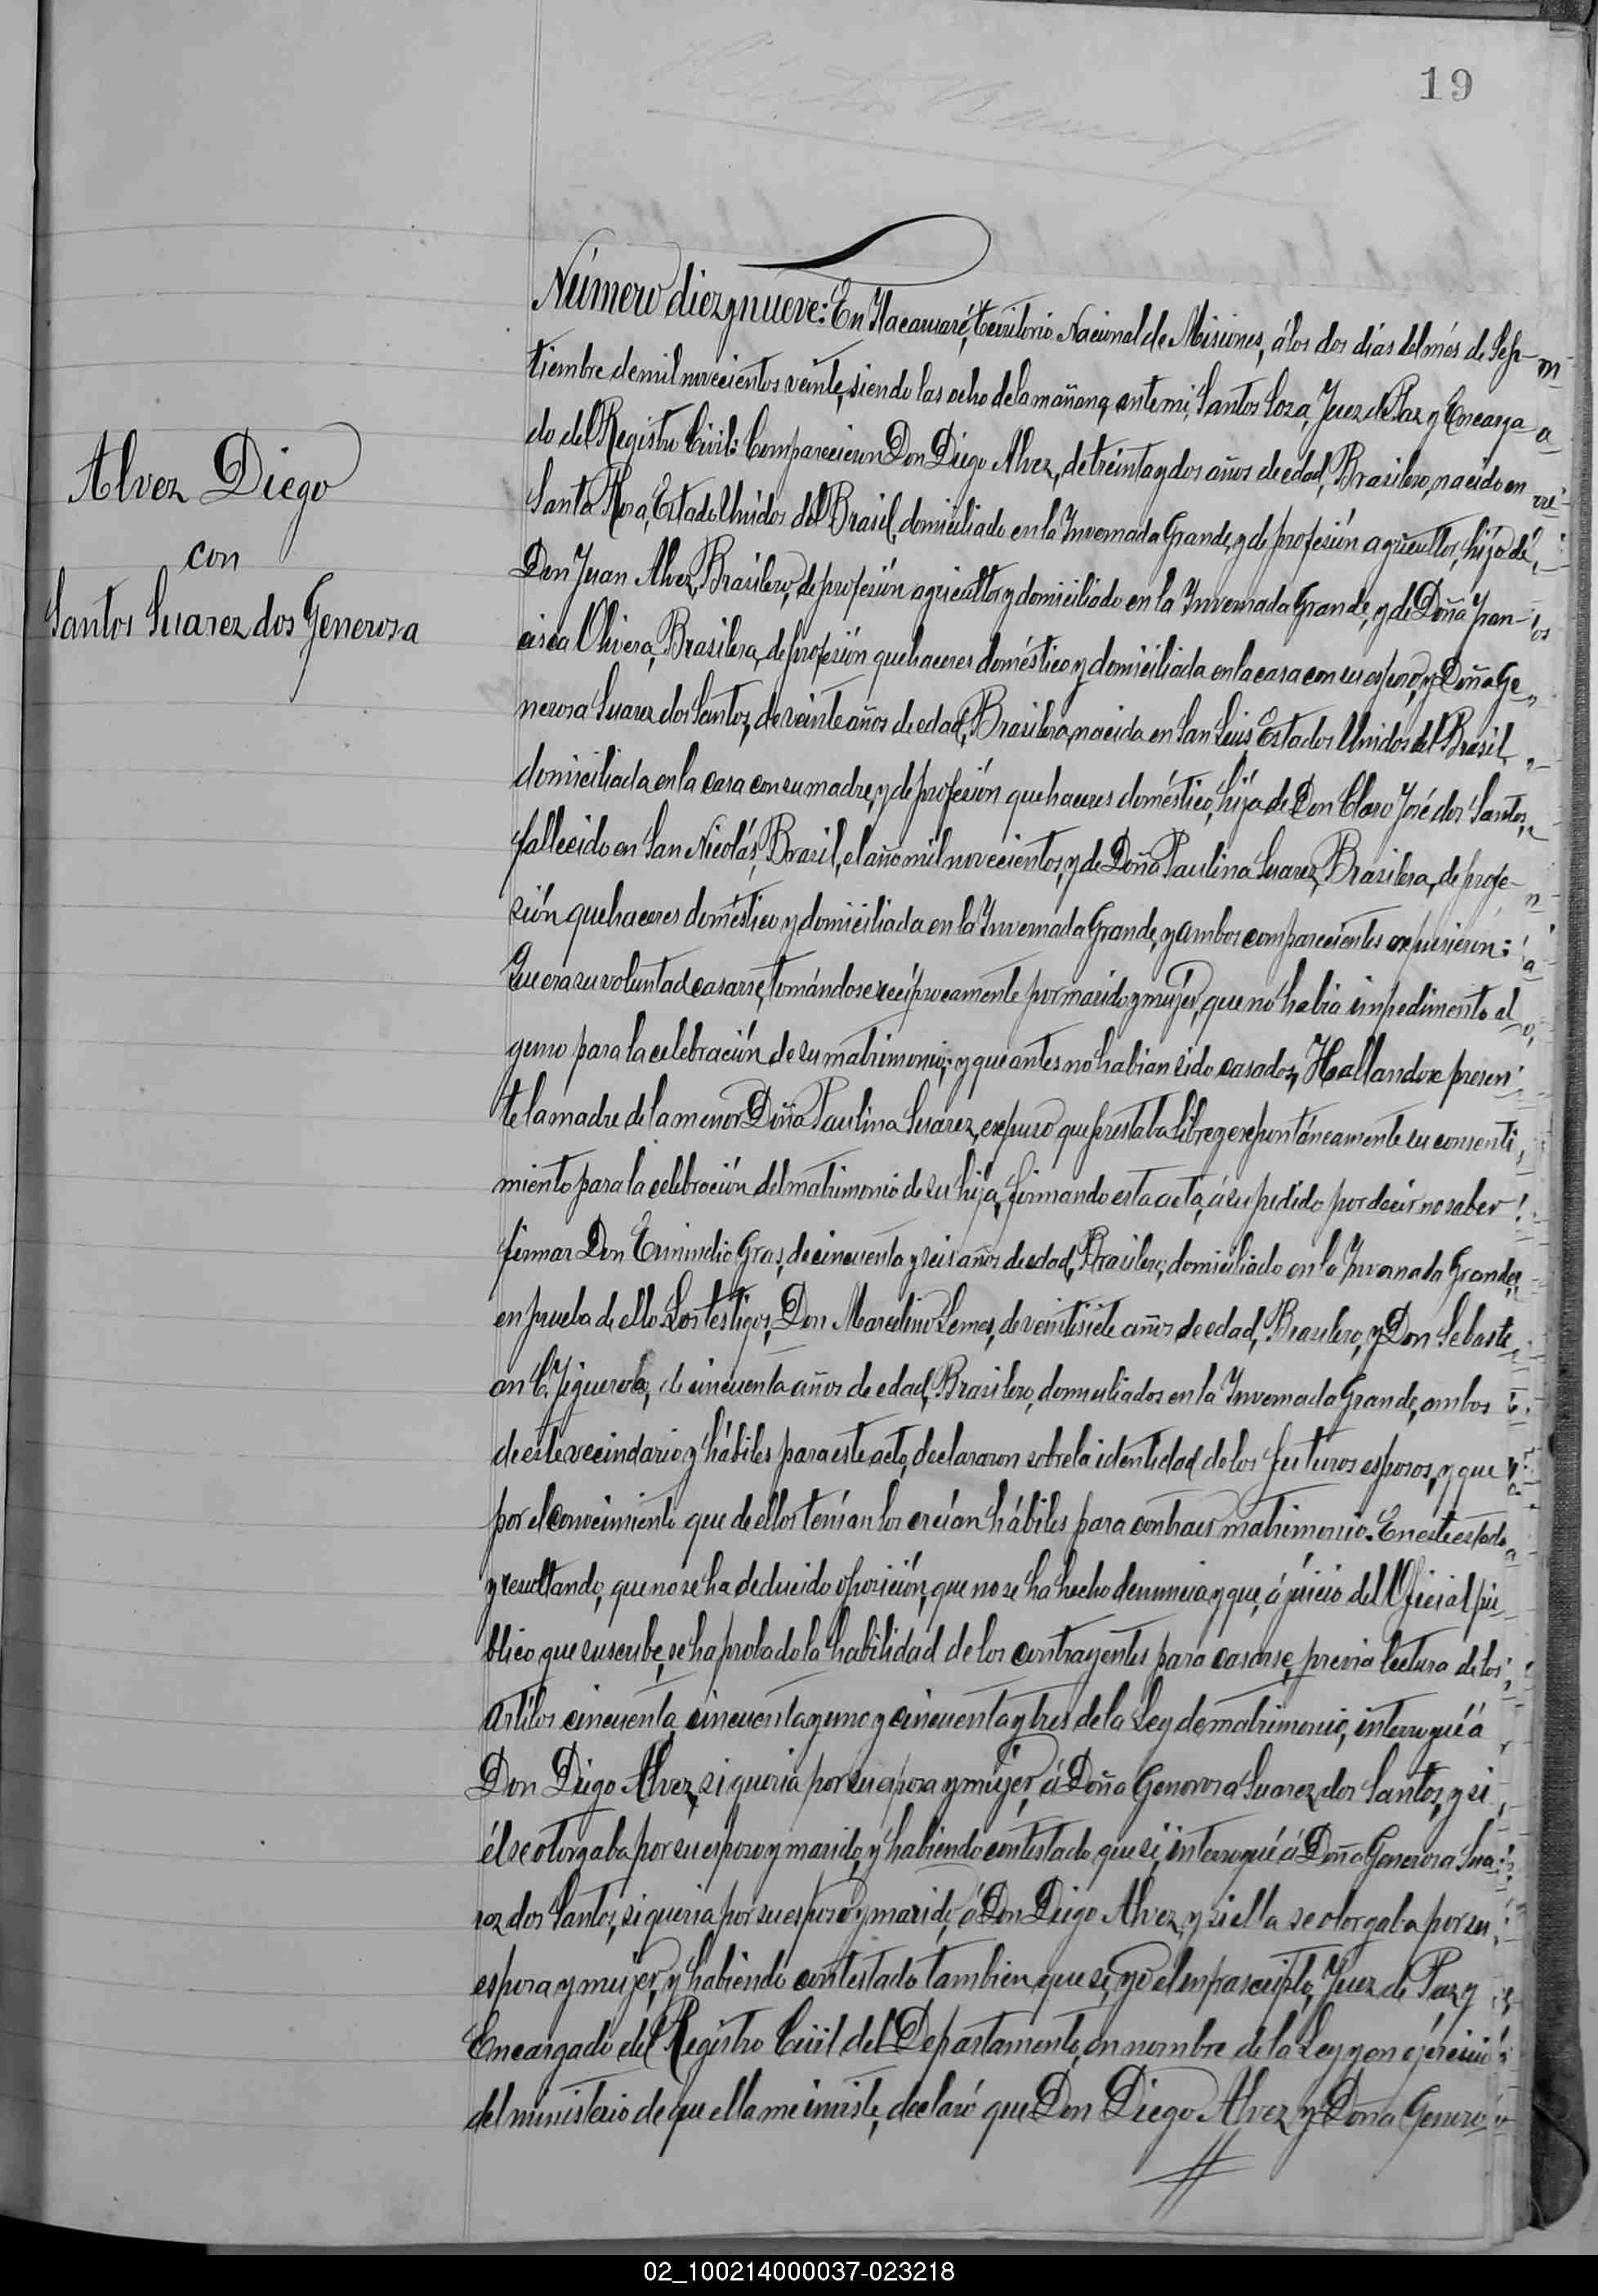 19
Alvez Diego
con
Santos Suarez dos Generosa
Número diez y nueve: En Itacaruaré, Territorio Nacional de Misiones, á los dos días del més de Sep-
tiembre de mil novecientos veinte, siendo las ocho de la mañana, ante mi, Santos Loza, Juez de Paz y Encarga-
do del Registro Civil: Comparecieron Don Diego Alvez, de treinta y dos años de edad, Brasilero, nacido en
Santa Rosa, Estado Unidos del Brasil, domiciliado en la Invernada Grande, y de profesión agricultor, hijo de
Don Juan Alvez, Brasilero, de profesión agricultor y domiciliado en la Invernada Grande, y de Doña Fran-
cisca Olivera, Brasilera, de profesión quehaceres doméstico y domiciliada en la casa con su esposo, y Doña Ge-
nerosa Suarez dos Santos, de veinte años de edad, Brasilera, nacida en San Luis, Estados Unidos del Brasil,
domiciliada en la casa con su madre, y de profesión quehaceres doméstico, hija de Don Claro José dos Santos,
fallecido en San Nicolás, Brasil, el año mil novecientos, y de Doña Paulina Suarez, Brasilera, de profe-
sión quehaceres doméstico y domiciliada en la Invernada Grande, y ambos comparecientes expusieron:
Que era su voluntad casarse, tomándose recíprocamente por marido y mujer, que no habia impedimento al
guno para la celebración de su matrimonio; y que antes no habian sido casados, Hallandose presen
te la madre de la menor Doña Paulina Suarez, expuso que prestaba libre y expontáneamente su consenti
miento para la celebración del matrimonio de su hija, firmando esta acta, á su pedido por decir no saber
firmar Don Ermindio Gras, de cincuenta y seis años de edad, Brasilero, domiciliado en la Invernada Grande,
en prueba de ello. Los testigos, Don Marcelino Lemes, de veintisiete años de edad, Brasilero, y Don Sebasti
an C. Figuerola, de cincuenta años de edad, Brasilero, domiciliados en la Invernada Grande, ambos
de este vecindario y hábiles para este acto, declararon sobre la identidad de los futuros esposos, y que
por el conocimiento que de ellos tenían los creían hábiles para contraer matrimonio. En este estado
y resultando, que no se ha deducido oposición, que no se ha hecho denuncia y que, á juicio del Oficial pú
blico que suscribe, se ha probado la habilidad de los contrayentes para casarse, previa lectura de los
artílos cincuenta, cincuenta y uno y cincuenta y tres de la Ley de matrimonio, interrogué á
Don Diego Alvez, si queria por su esposa y mujer, á Doña Generosa Suarez dos Santos, y si
él se otorgaba por su esposo y marido, y habiendo contestado que si, interrogué á Doña Generosa Sua
rez dos Santos, si queria por su esposo y marido, á Don Diego Alvez, y si ella se otorgaba por su
esposa y mujer, y habiendo contestado tambien que si, yo el infrascripto, Juez de Paz y
Encargado del Registro Civil del Departamento, en nombre de la Ley y en ejercicio
del ministerio de que ella me inviste, declaró que Don Diego Alvez y Doña Genero
02_100214000037-023218